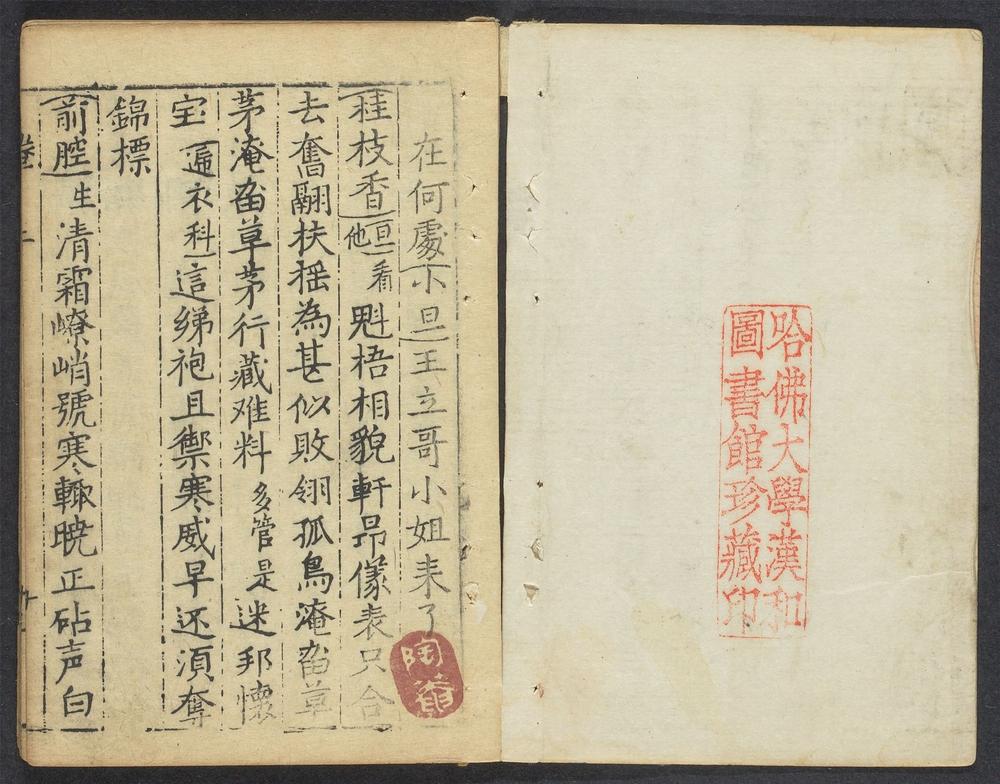 哈佛大學漢和
圖書館珍藏印
在何處小旦王立哥小姐来了
桂枝香旦他看魁梧相貌軒昂儀表只合
去奮翮扶摇為甚似敗翎孤鳥淹畄草
茅淹畄草茅行藏难料多管是迷邦懷
宝遍衣科這綈袍且禦寒威早还湏奪
錦標
前腔生清霜嶛峭號寒輙曉正砧声白
陶